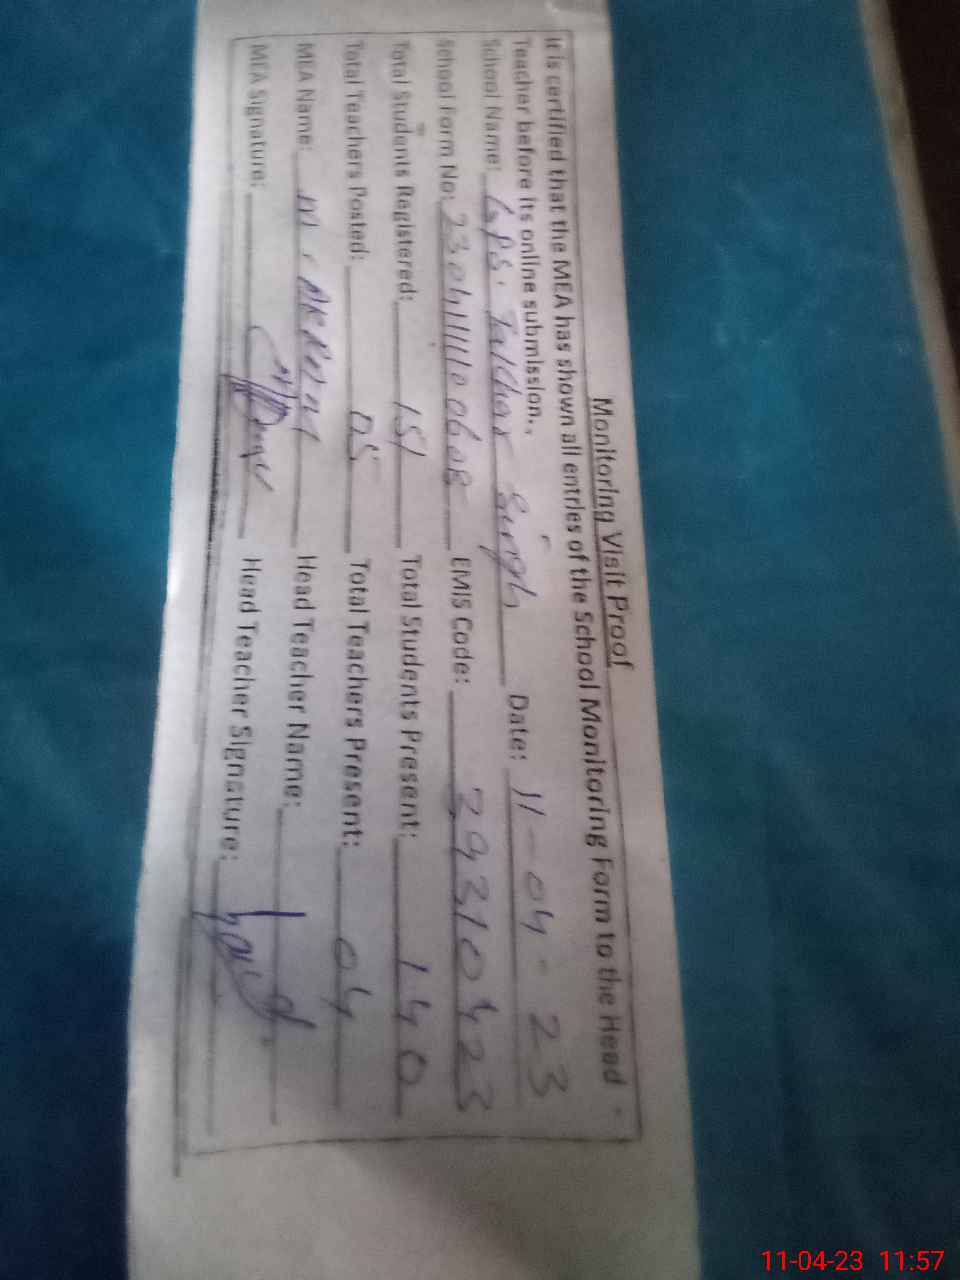 Monitoring Visit Proof
It is certified that the MEA has shown all entries of the School Monitoring Form to the Head
Teacher before its online submission..
School Name: GPS. Singh Date: 11-04-23
School Form No: EMIS Code: 29310423
Total Students Registered: 151 Total Students Present: 140
Total Teachers Posted: 05 Total Teachers Present: 04
MEA Name: M. AKRAM Head Teacher Name:
MEA Signature: Head Teacher Signature:
11-04-23 11:57